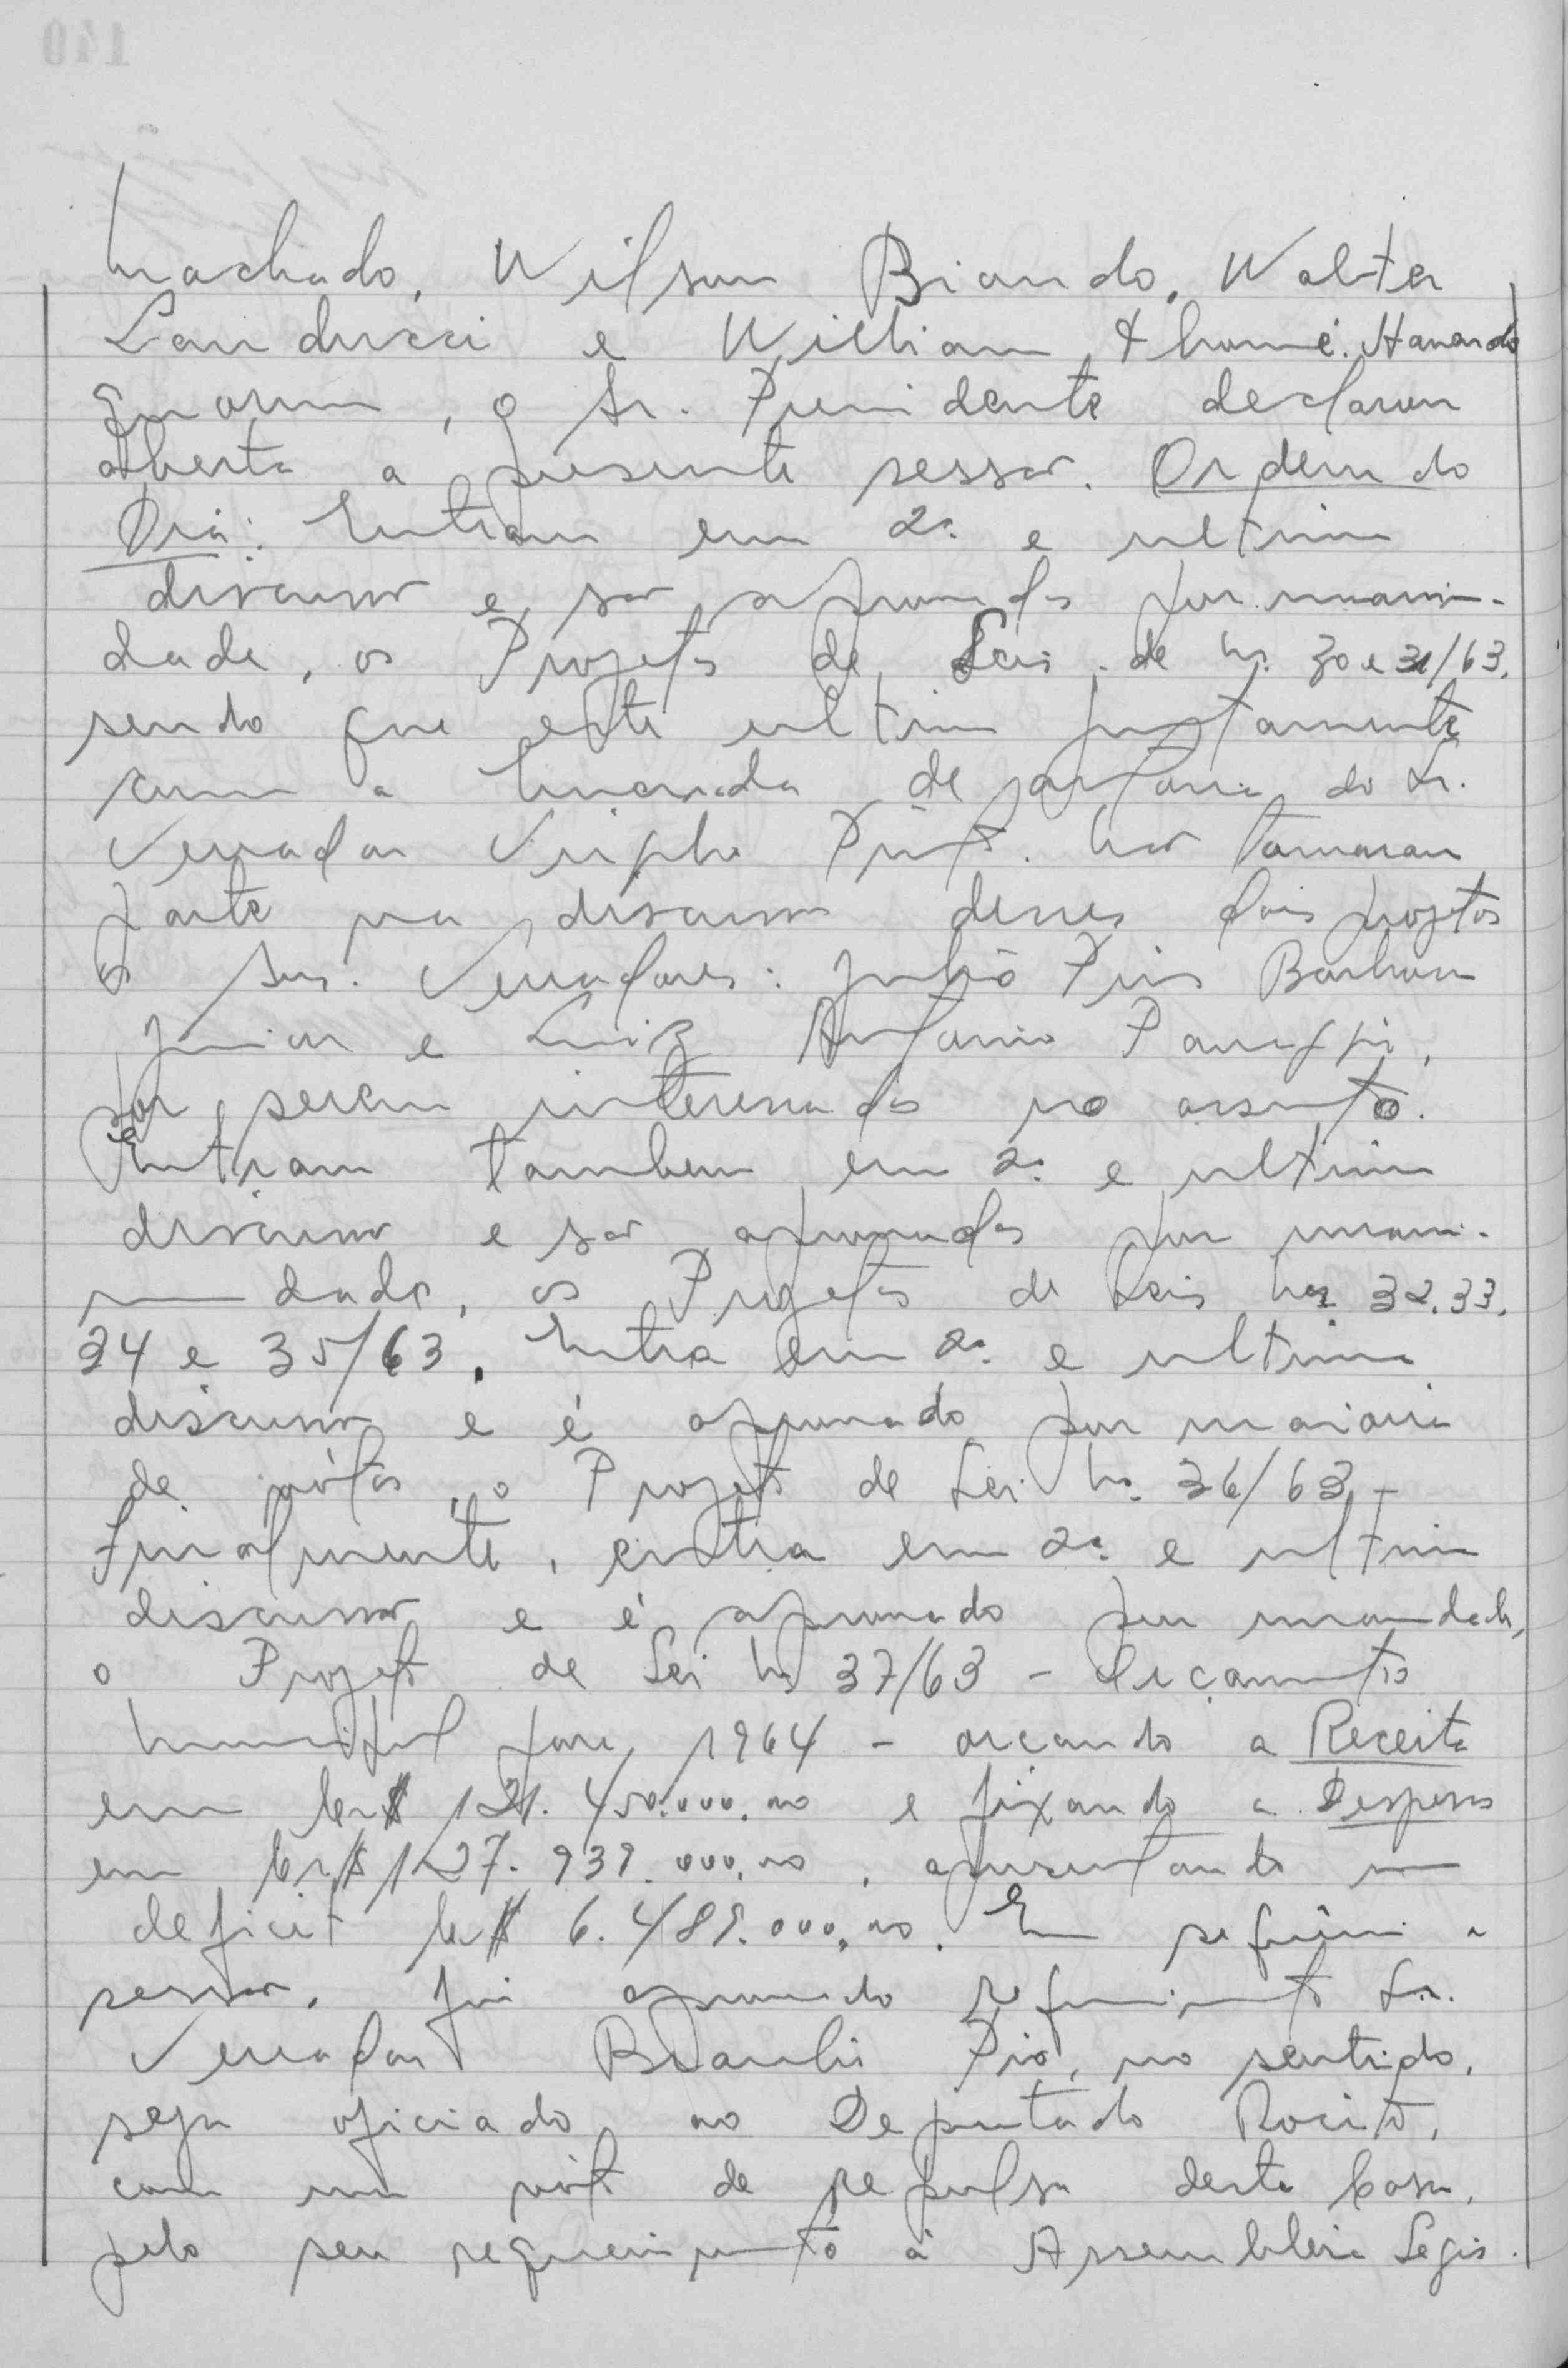 Machado, Wilson Biondo, Walter
Landucci e William Thomé. Havendo
quorum, o Sr. Presidente declarou
aberta a presente sessão. Ordem do
Dia: Entram em 2ª e ultima
discussão e são aprovados por unanimi-
dade, os Projetos de Leis de nº 30 e 31/63,
sendo que este ultimo juntamente
com a Emenda de autoria do Sr.
Vereador Virgilio. Não tomaram
parte na discussão desses dois projetos
os Srs. Vereadores: Julio Pires Barbosa
Junior e Luiz Antonio,
por serem interessados no assunto.
Entram tambem em 2ª e ultima
discussão e são aprovados por unani-
midade, os Projetos de Leis nos 32, 33,
34 e 35/63. Entra em 2ª e ultima
discussão e é aprovado por maioria
de vótos, o Projeto de Lei nº 36/63 -
Finalmente, entra em 2ª e ultima
discussão e é aprovado por unanimidade,
o Projeto de Lei nº 37/63 - Orçamento
Municipal para 1964 - orçando a Receita
em Cr$ 121.450.000,00 e fixando a Despesa
em Cr$ 127.939.000,00, apresentando um
deficit Cr$ 6.489.000,00. Em seguida a
sessão, foi aprovado requerimento Sr.
Vereador Braulio Pio, no sentido,
seja oficiado ao Deputado Rocito,
com um vóto de repulsa desta Casa,
pelo seu requerimento à Assembleia Legis.
140